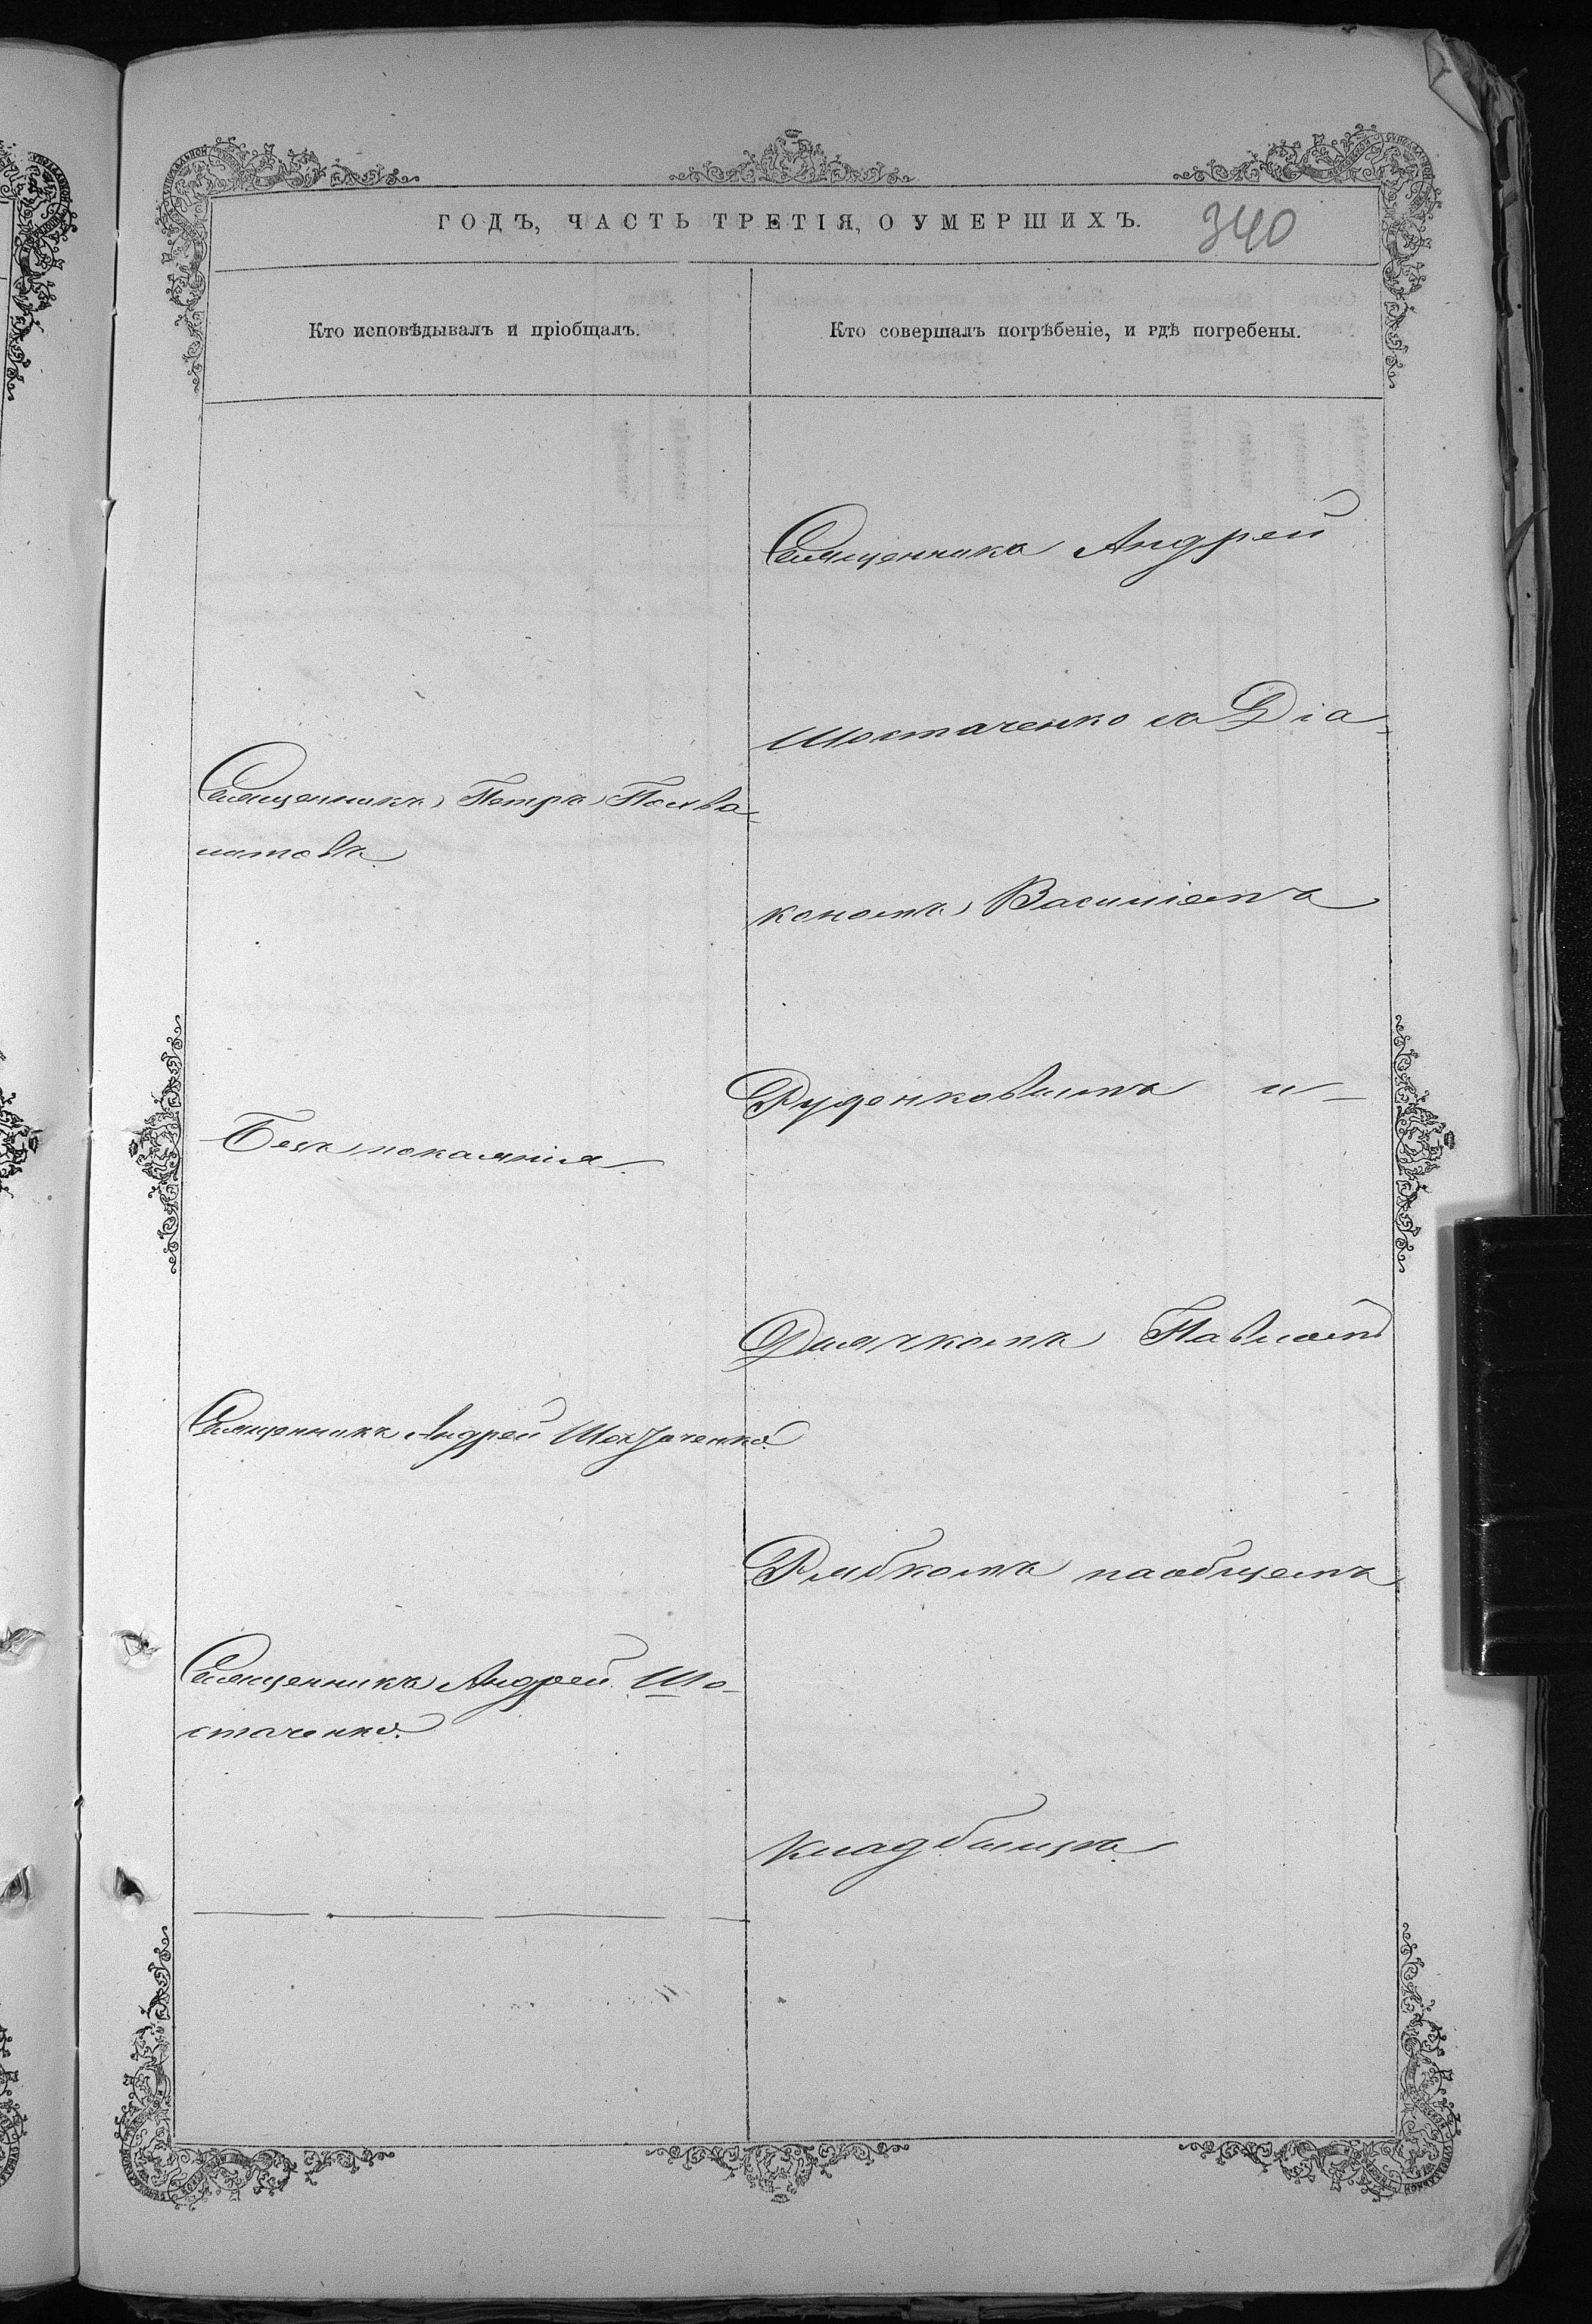 ГОДЪ, ЧАСТЬ ТРЕТІЯ, О УМЕРШИХЪ.
340
Кто исповѣдывалъ и пріобщалъ.
Кто совершалъ погрѣбеніе, и гдѣ погребены.
Священникъ Петръ
Безъ покаянія.
Священникъ Андрей Шостаченко.
Священникъ Андрей Шо-
стаченко.
Священникъ Андрей
Шостаченко съ Діа-
кономъ Василіемъ
Руденковымъ и
Дьячкомъ Павломъ
Рябкомъ на общемъ
кладбищѣ.